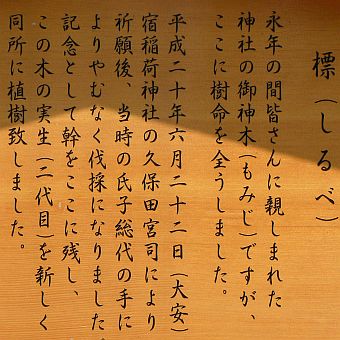 標（しるべ）
永年の間皆さんに親しまれた
神社の御神木（もみじ）ですが、
ここに樹命を全うしました。
平成二十年六月二十二日（大安）
宿稲荷神社の久保田宮司により
祈願後、当時の氏子総代の手に
よりやむなく伐採になりました。
記念として幹をここに残し、
この木の実生（二代目）を新しく
同所に植樹致しました。